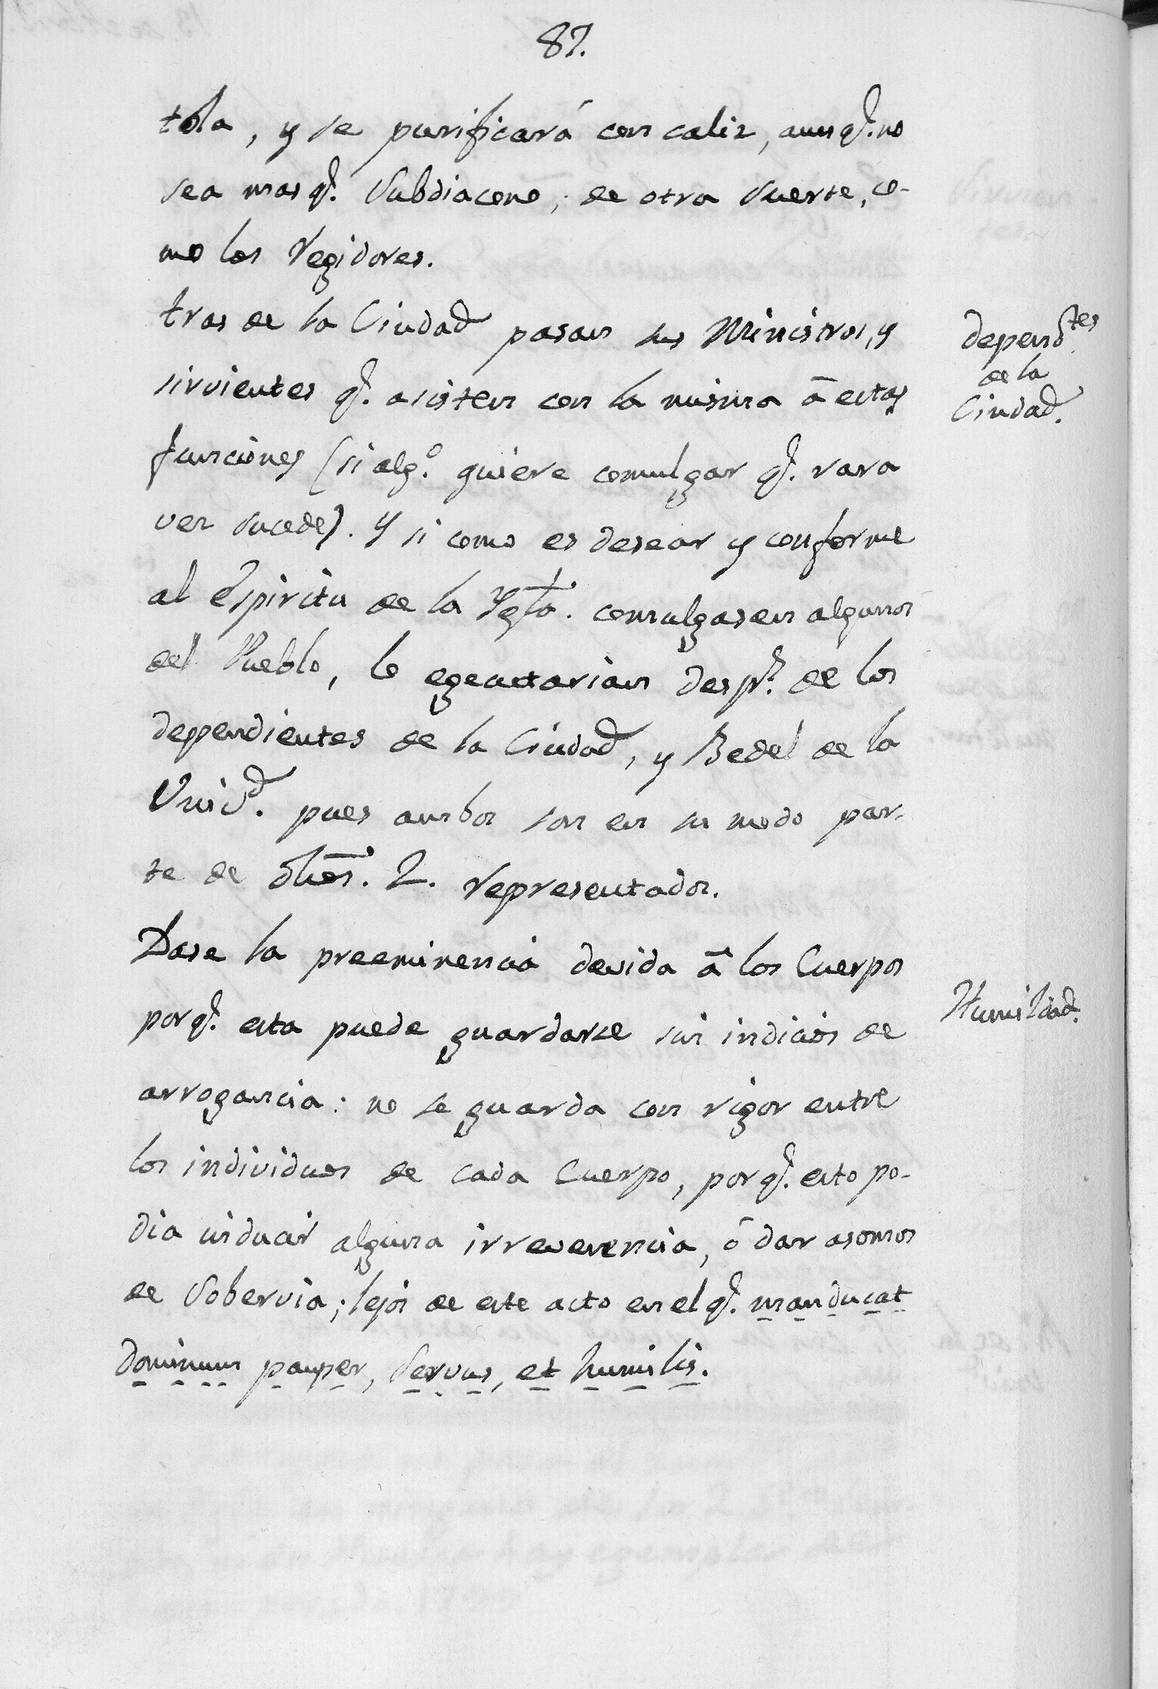 87.
tola, y se purificará con caliz, aunq.e no
sea mas q.e Subdiacono; de otra suerte, co-
mo los Regidores.
tras de la Ciudad pasan sus Ministros, y
sirvientes q.e asisten con la misma â estas
funciones (si alg.o quiere comulgar q.e rara
vez sucede). Y si como es desear y conforme
al espiritu de la Ygla. comulgasen algunos
del Pueblo, lo egecutarian desp.s de los
dependientes de la Ciudad, y Bedel de la
Univ.d pues ambos son en su modo par-
te de dhos. 2. representados.
Dase la preeminencia devida â los Cuerpos
porq.e esta puede guardarse sin indicios de
arrogancia: no se guarda con rigor entre
los individuos de cada Cuerpo, porq.e esto po-
dia inducir alguna irreverencia, ó dar asomos
de Sobervia; lejos de este acto en el q.e manducat
dominum pauper, Servus, et humilis.
depend.tes
de la
Ciudad.
Humildad.